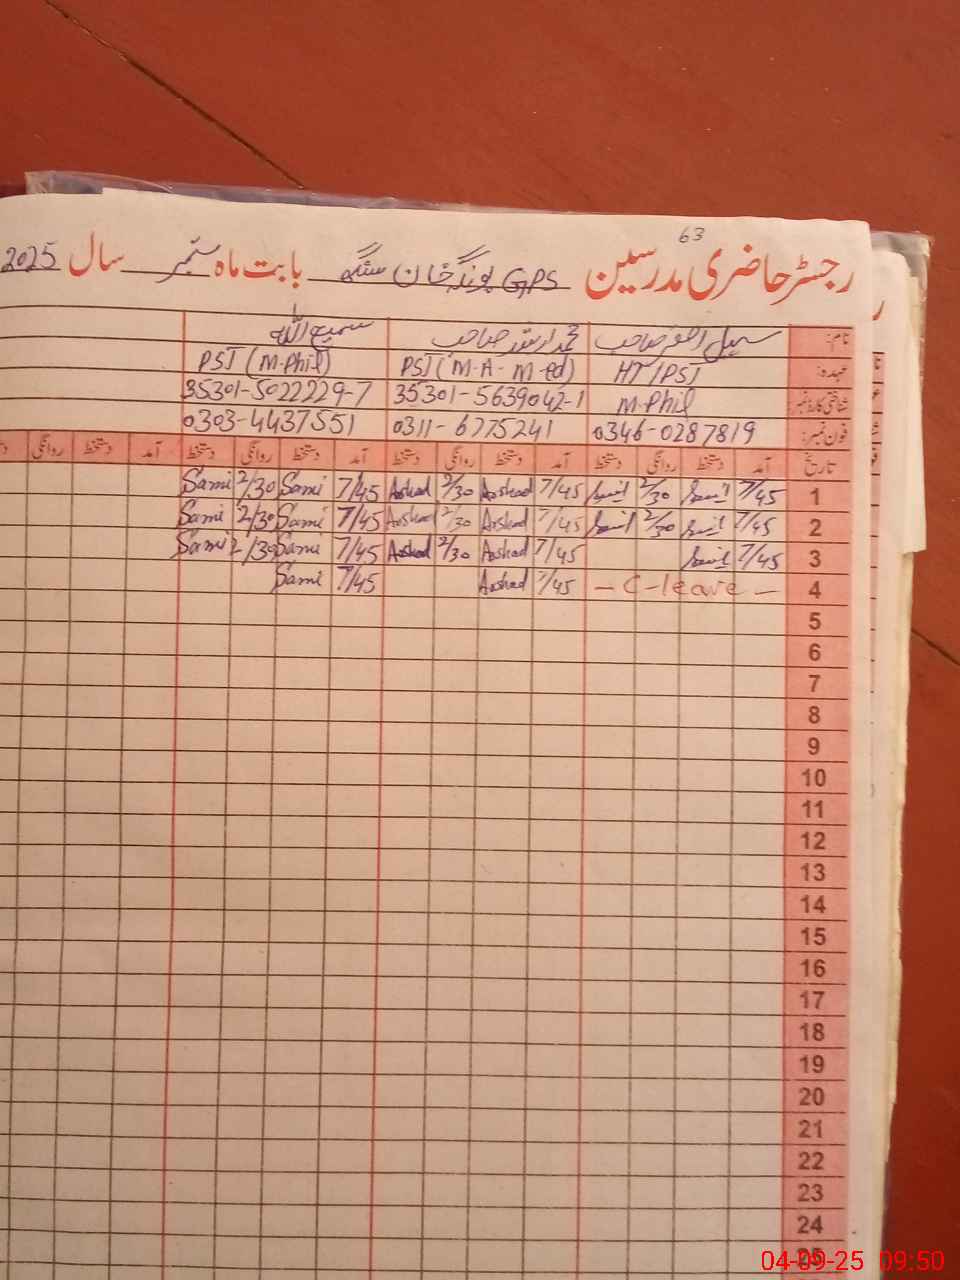 63
رجسٹر حاضری مدرسین GPS بونگہ خان سنگھ بابت ماہ ستمبر سال 2025
نام: محمد ارشد صاحب سمیع اللہ
عہدہ: HT/PST PST (M-A- M-ed) PST (M-Phil)
شناختی کارڈ نمبر: M-Phil 35301-5639042-1 35301-5022229-7
فون نمبر: 0346-0287819 0311-6775241 0303-4437551
تاریخ آمد دستخط روانگی دستخط آمد دستخط روانگی دستخط آمد دستخط روانگی دستخط آمد دستخط روانگی
1 7/45 2/30 7/45 Arshad 2/30 Arshad 7/45 Sami 2/30 Sami
2 7/45 2/30 7/45 Arshad 2/30 Arshad 7/45 Sami 2/30 Sami
3 7/45 7/45 Arshad 2/30 Arshad 7/45 Sami 2/30 Sami
4 - C-leave - 7/45 Arshad 7/45 Sami
5
6
7
8
9
10
11
12
13
14
15
16
17
18
19
20
21
22
23
24
25
04-09-25 09:50